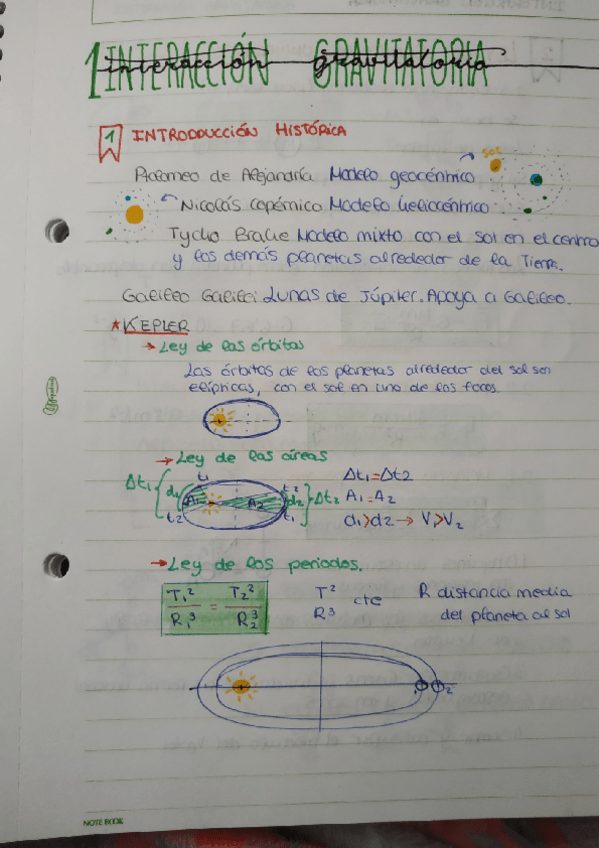 1 INTERACCIÓN GRAVITATORIA
interacción gravitatoria
1 INTRODUCCIÓN HISTÓRICA
Ptolomeo de Alejandría Modelo geocéntrico
SOL
Nicolás Copérnico Modelo heliocéntrico
Tycho Brache Modelo mixto con el sol en el centro
y los demás planetas alrededor de la Tierra.
Galileo Galilei Lunas de Júpiter. Apoya a Galileo.
*KEPLER
→ Ley de las órbitas
Las órbitas de los planetas alrededor del sol son
elípticas, con el sol en uno de los focos.
→ Ley de las áreas
Δt1 { d1 t1 A1 t2 A2 t2 d2 t1 } Δt2
Δt1=Δt2
A1=A2
d1>d2 → V1>V2
→ Ley de los periodos.
T1²/R1³ = T2²/R2³
T²/R³ cte
R distancia media
del planeta al sol
1 2
NOTE BOOK